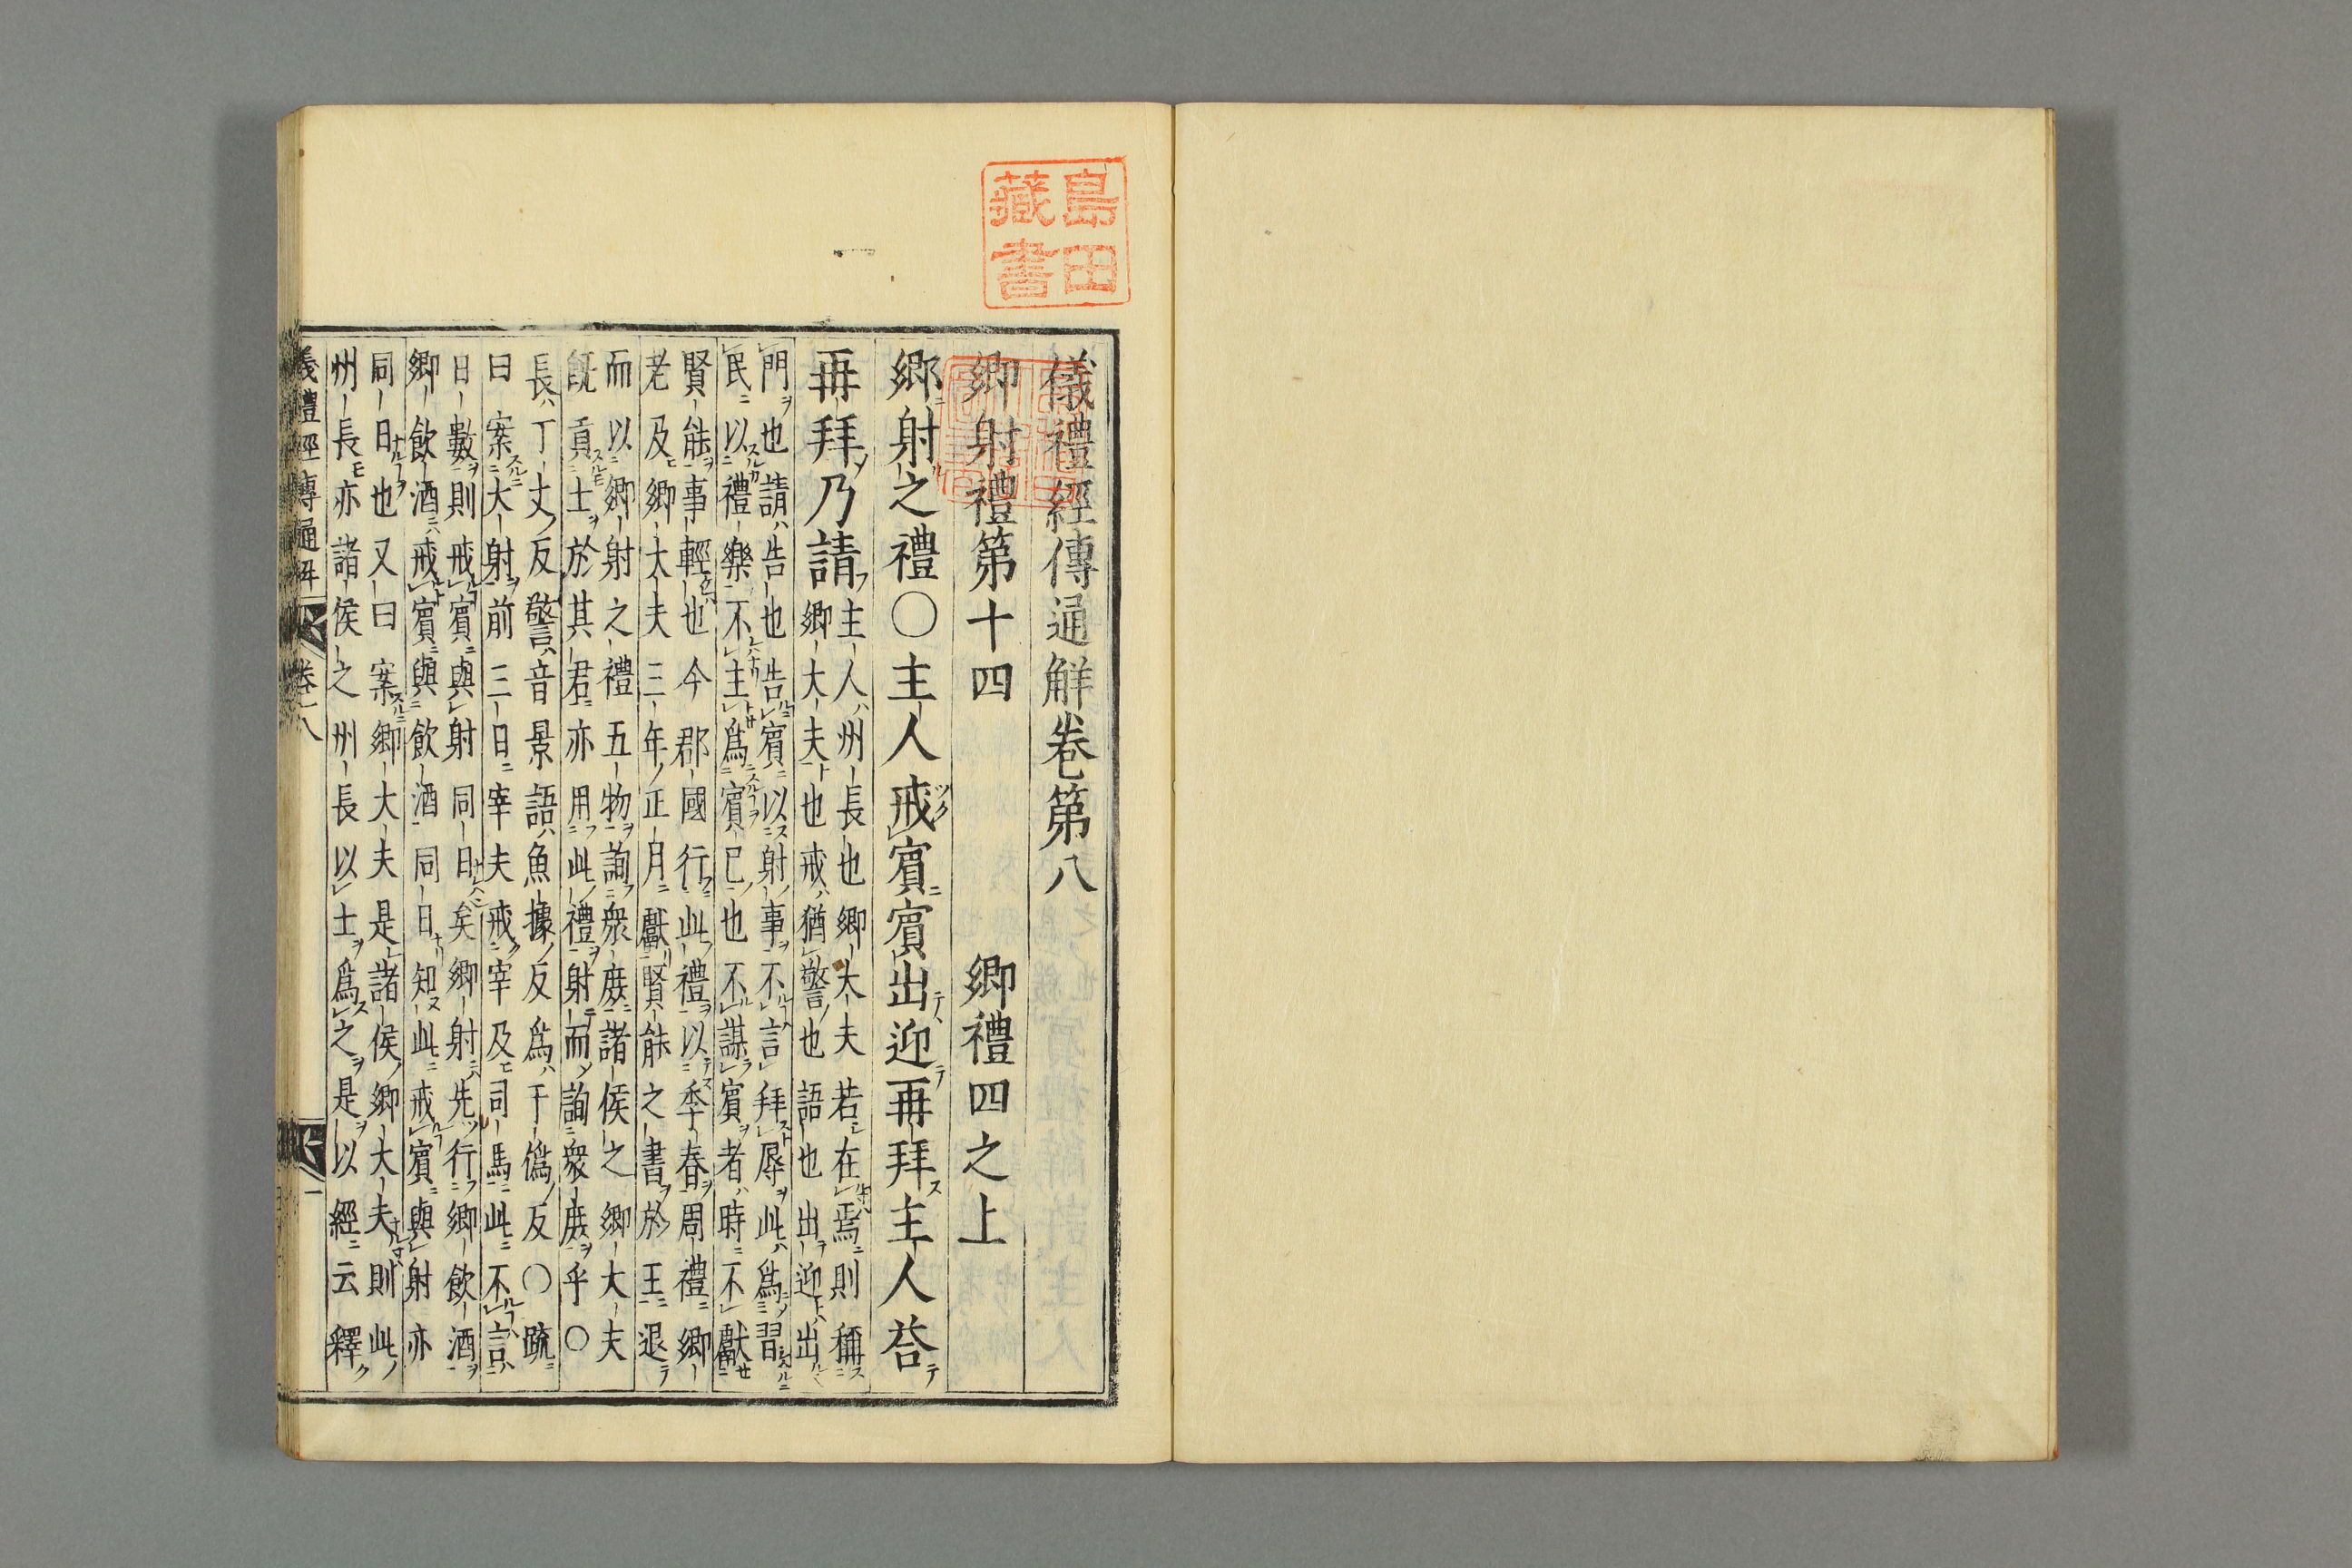 島田
藏書
儀禮經傳通解卷第八
鄉射禮第十四　鄉禮四之上
鄉射之禮〇主人戒賓賓出迎再拜主人荅
再拜乃請
主人州長也鄉大夫若在焉則稱
鄉大夫也戒猶警也語也出迎出
門也請告也告賓以射事不言拜辱此爲習
民以禮樂不主爲賓已也不謀賓者時不獻
賢能事輕也今郡國行此禮以季春周禮鄉
老及鄉大夫三年正月獻賢能之書於王退
而以鄉射之禮五物詢衆庶諸侯之鄉大夫
既貢士於其君亦用此禮射而詢衆庶乎〇
長丁丈反警音景語魚據反爲于僞反〇疏
曰案大射前三日宰夫戒宰及司馬此不言
日數則戒賓與射同日矣鄉射先行鄉飲酒
鄉飲酒戒賓與飲酒同日知此戒賓與射亦
同日也又曰案鄉大夫是諸侯鄉大夫則此
州長亦諸侯之州長以士爲之是以經云釋
儀禮經傳通解　卷八　一